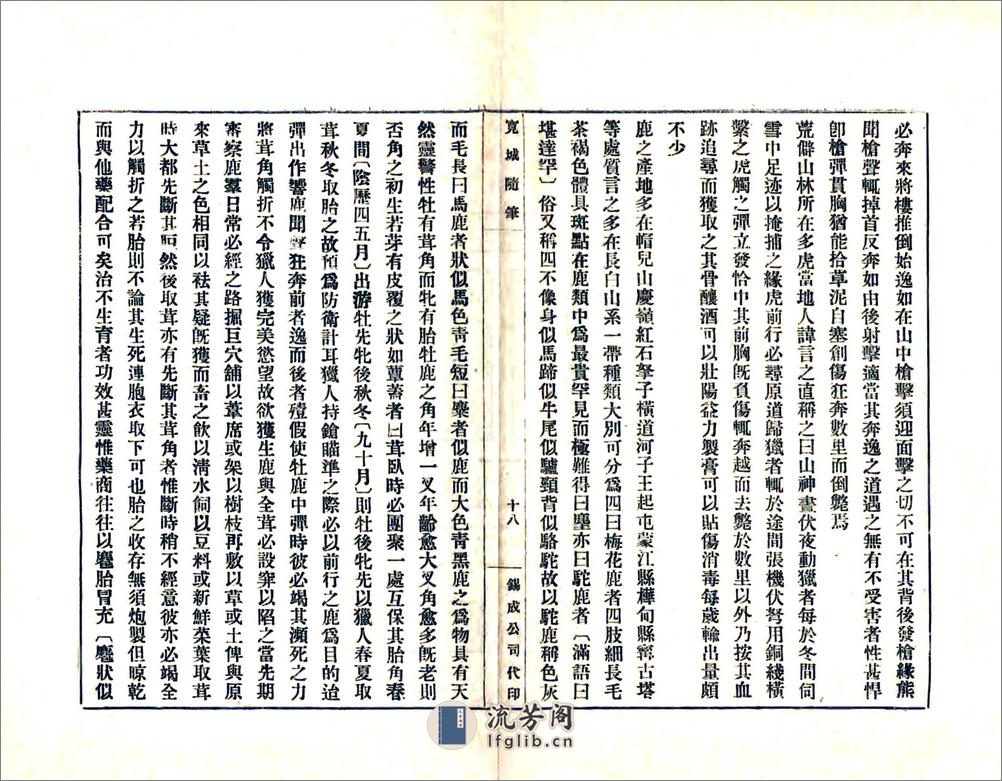 必奔來將樓推倒始逸如在山中槍擊須迎面擊之切不可在其背後發槍緣熊
聞槍聲輒掉首反奔如由後射擊適當其奔逸之道遇之無有不受害者性甚悍
卽槍彈貫胸猶能拾草泥自塞創傷狂奔數里而倒斃焉
荒僻山林所在多虎當地人諱言之直稱之曰山神晝伏夜動獵者每於冬間伺
雪中足迹以掩捕之緣虎前行必尋原道歸獵者輒於途間張機伏弩用銅綫橫
繫之虎觸之彈立發恰中其前胸旣負傷輒奔越而去斃於數里以外乃按其血
跡追尋而獲取之其骨釀酒可以壯陽益力製膏可以貼傷消毒每歲輸出量頗
不少
鹿之產地多在帽兒山慶嶺紅石拏子橫道河子王起屯蒙江縣樺甸縣寗古塔
等處質言之多在長白山系一帶種類大別可分爲四曰梅花鹿者四肢細長毛
茶褐色體具斑點在鹿類中爲最貴罕見而極難得曰麈亦曰駝鹿者〔滿語曰
堪達罕〕俗又稱四不像身似馬蹄似牛尾似驢頸背似駱駝故以駝鹿稱色灰
寬城隨筆
十八
錫成公司代印
而毛長曰馬鹿者狀似馬色靑毛短曰麋者似鹿而大色靑黑鹿之爲物具有天
然靈警性牡有茸角而牝有胎牡鹿之角年增一叉年齡愈大叉角愈多旣老則
否角之初生若芽有皮覆之狀如蕈蓄者曰茸臥時必團聚一處互保其胎角春
夏間〔陰歷四五月〕出游牡先牝後秋冬〔九十月〕則牡後牝先以獵人春夏取
茸秋冬取胎之故預爲防衛計耳獵人持鎗瞄準之際必以前行之鹿爲目的迨
彈出作響鹿聞聲狂奔前者逸而後者殪假使牡鹿中彈時彼必竭其瀕死之力
將茸角觸折不令獵人獲完美慾望故欲獲生鹿與全茸必設穽以陷之當先期
審察鹿羣日常必經之路掘巨穴舖以葦席或架以樹枝再敷以草或土俾與原
來草土之色相同以袪其疑旣獲而畜之飮以淸水飼以豆料或新鮮菜葉取茸
時大都先斷其脰然後取茸亦有先斷其茸角者惟斷時稍不經意彼亦必竭全
力以觸折之若胎則不論其生死連胞衣取下可也胎之收存無須炮製但晾乾
而與他藥配合可矣治不生育者功效甚靈惟藥商往往以麅胎冒充〔麅狀似
流芳阁
lfglib.cn